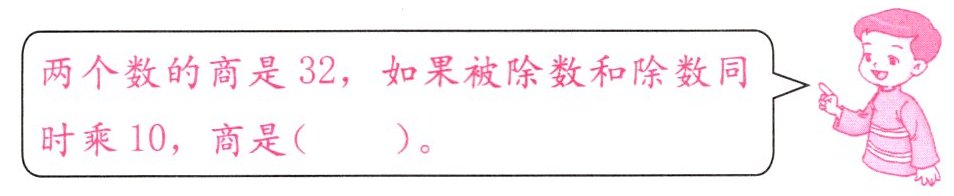 两个数的商是 32，如果被除数和除数同
时乘 10，商是(　　)。